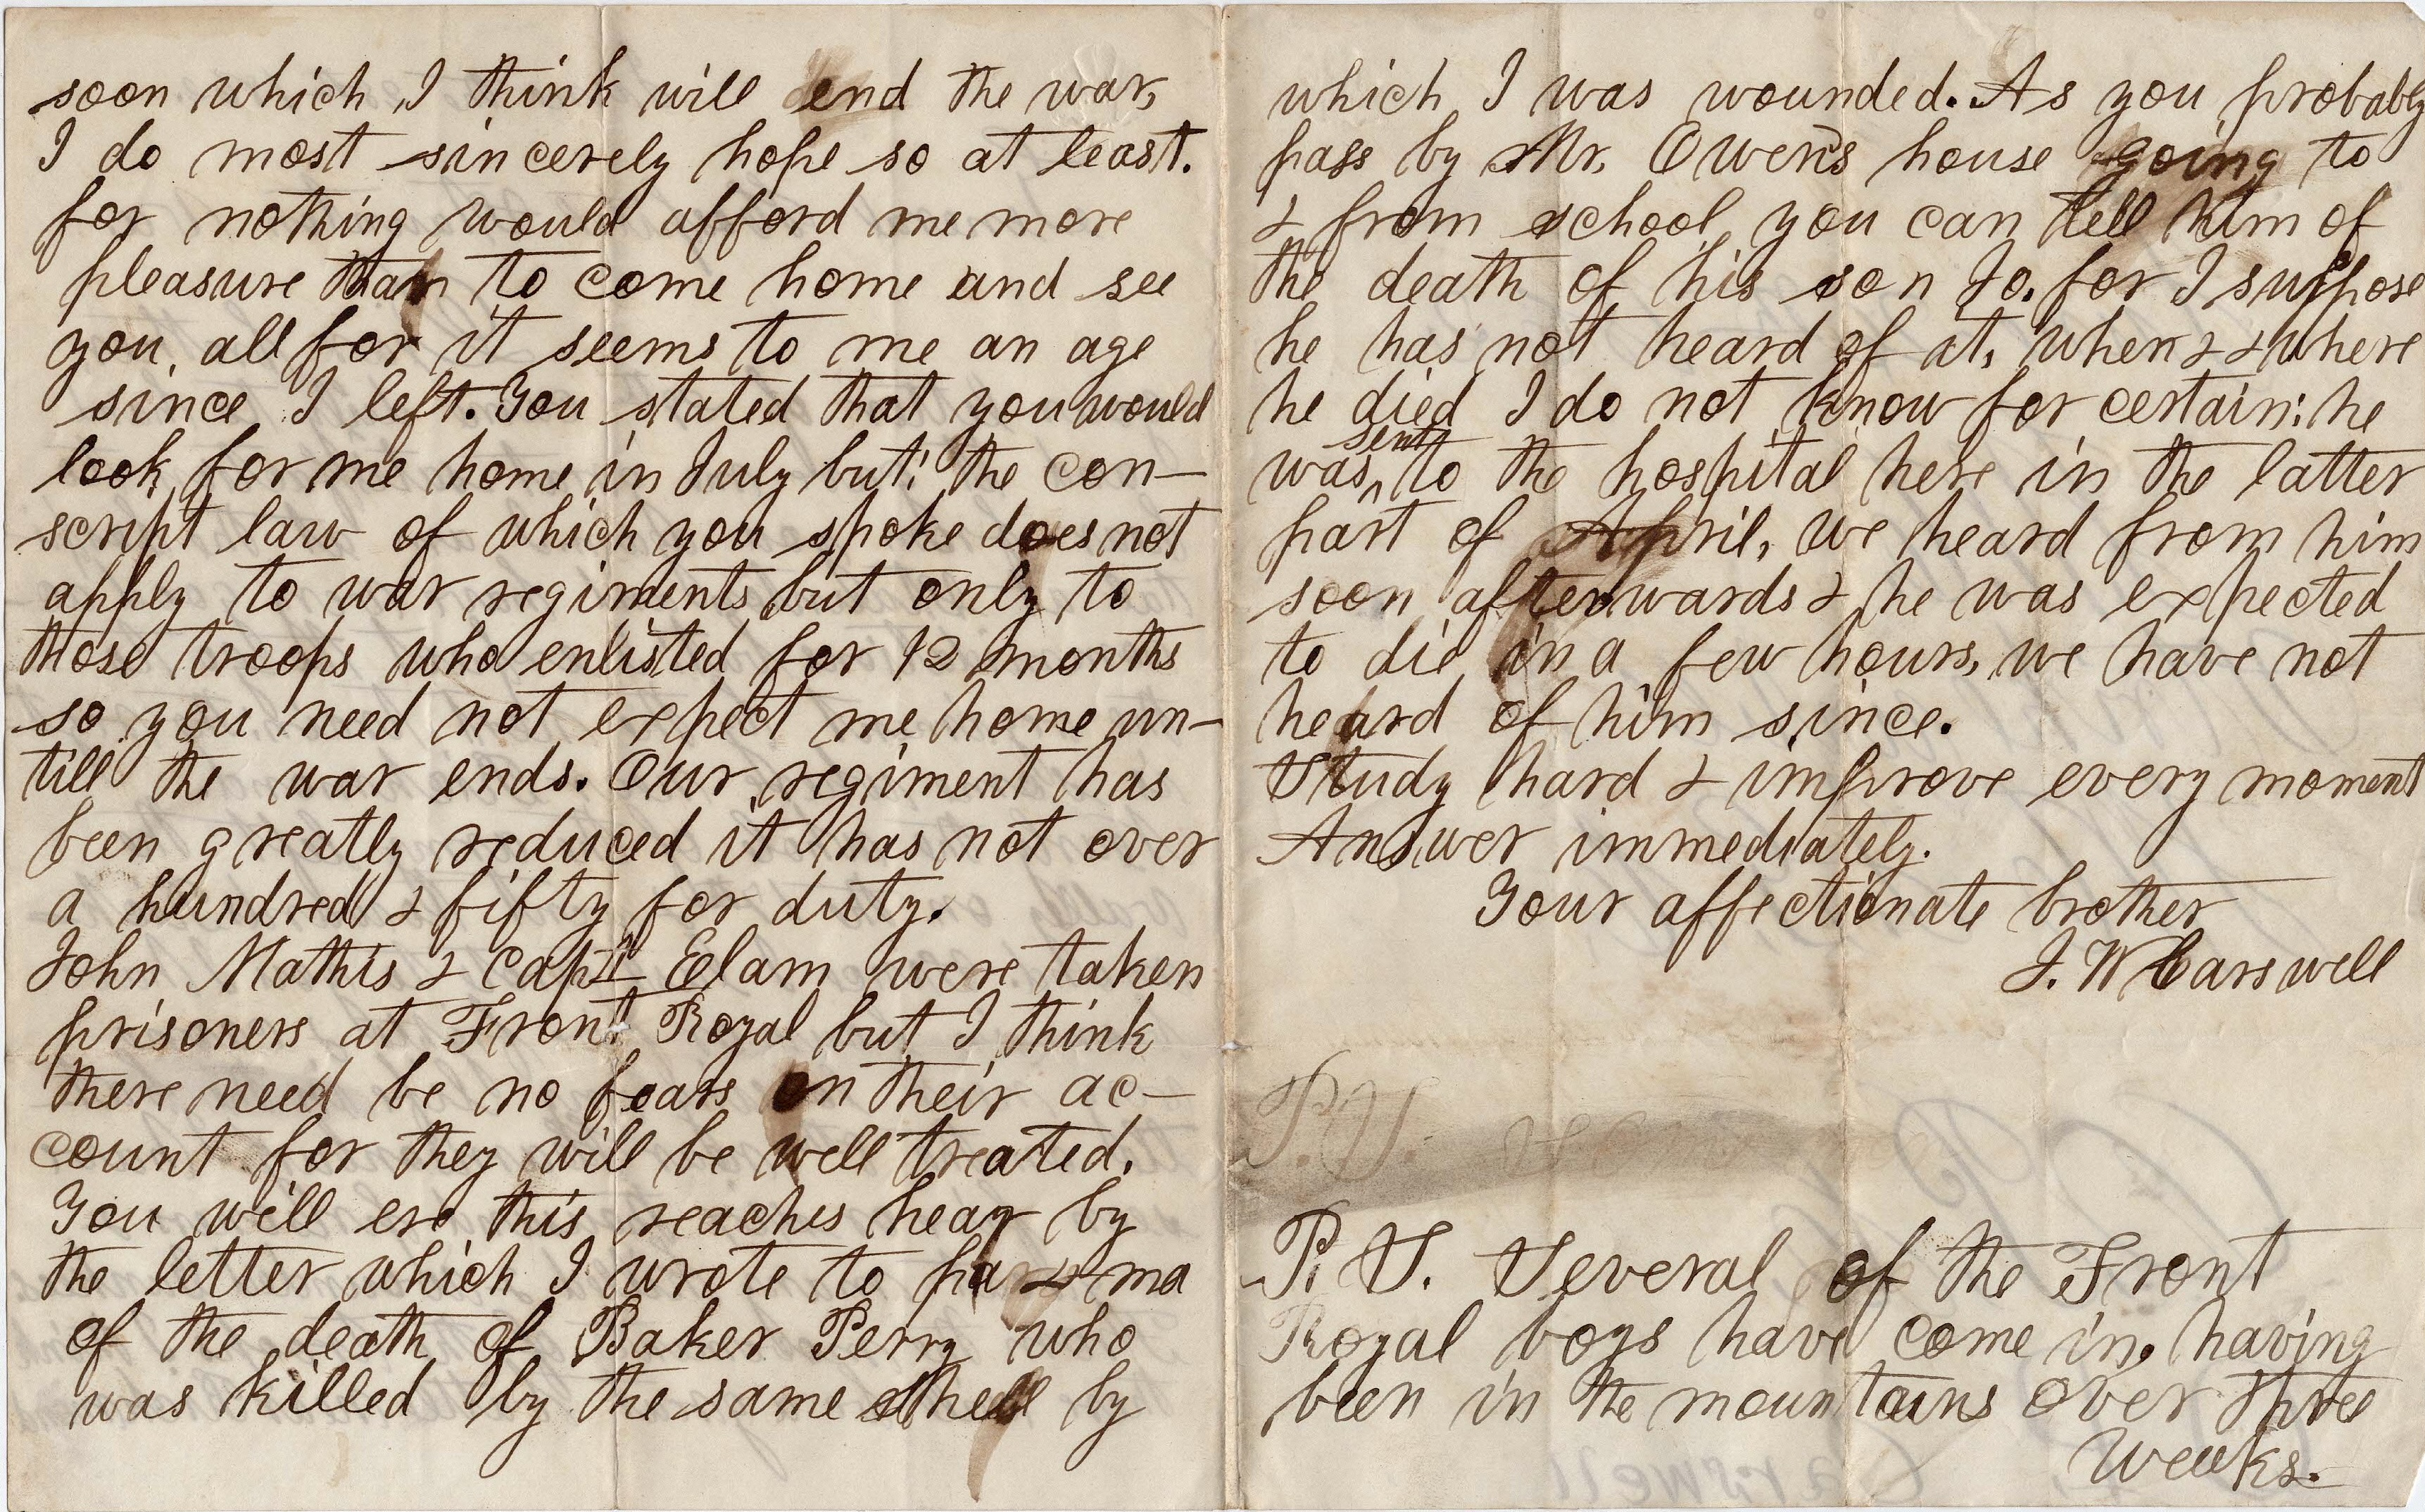 soon which I think will end the war,
I do most sincerely hope so at least.
for nothing would afford me more
pleasure than to come home and see
you all for it seems to me an age
since I left. You stated that you would
look for me home in July but the con-
script law of which you spoke does not
apply to war regiments but only to
those troops who enlisted for 12 months
so you need not expect me home un-
till the war ends. Our regiment has
been greatly reduced it has not over
a hundred & fifty for duty.
John Mathis & Capt Elam were taken
prisoners at Front Royal but I think
there need be no fears on their ac-
count for they will be well treated.
You will ere this reaches hear by
the letter which I wrote to pa & ma
of the death of Baker Perry who
was killed by the same shell by
which I was wounded. As you probably
pass by Mr. Owen's house going to
& from school you can tell him of
the death of his son Jo. for I suppose
he has not heard of it, when & & where
he died I do not know for certain: he
was sent to the hospital here in the latter
part of April, we heard from him
soon afterwards & he was expected
to die in a few hours, we have not
heard of him since.
Study hard & improve every moment
Answer immediately.
Your affectionate brother
J. W Carswell
P. S.
P. S. Several of the Front
Royal boys have come in, having
been in the mountains over three
weeks.